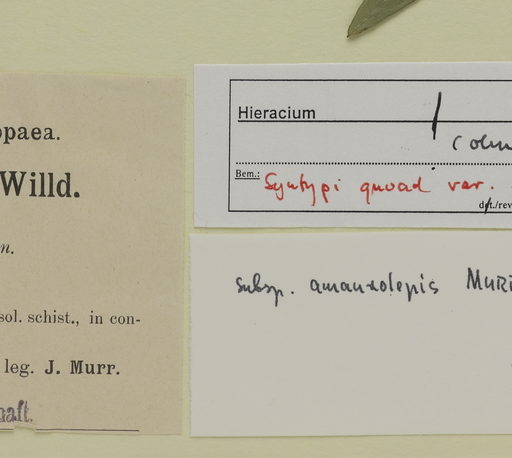 opaea.
Willd.
n.
sol. schist., in con-
leg. J. Murr.
haft.
Hieracium
Bem.: Syntypi quoad var.
det./rev
subsp. amaurolepis MURR